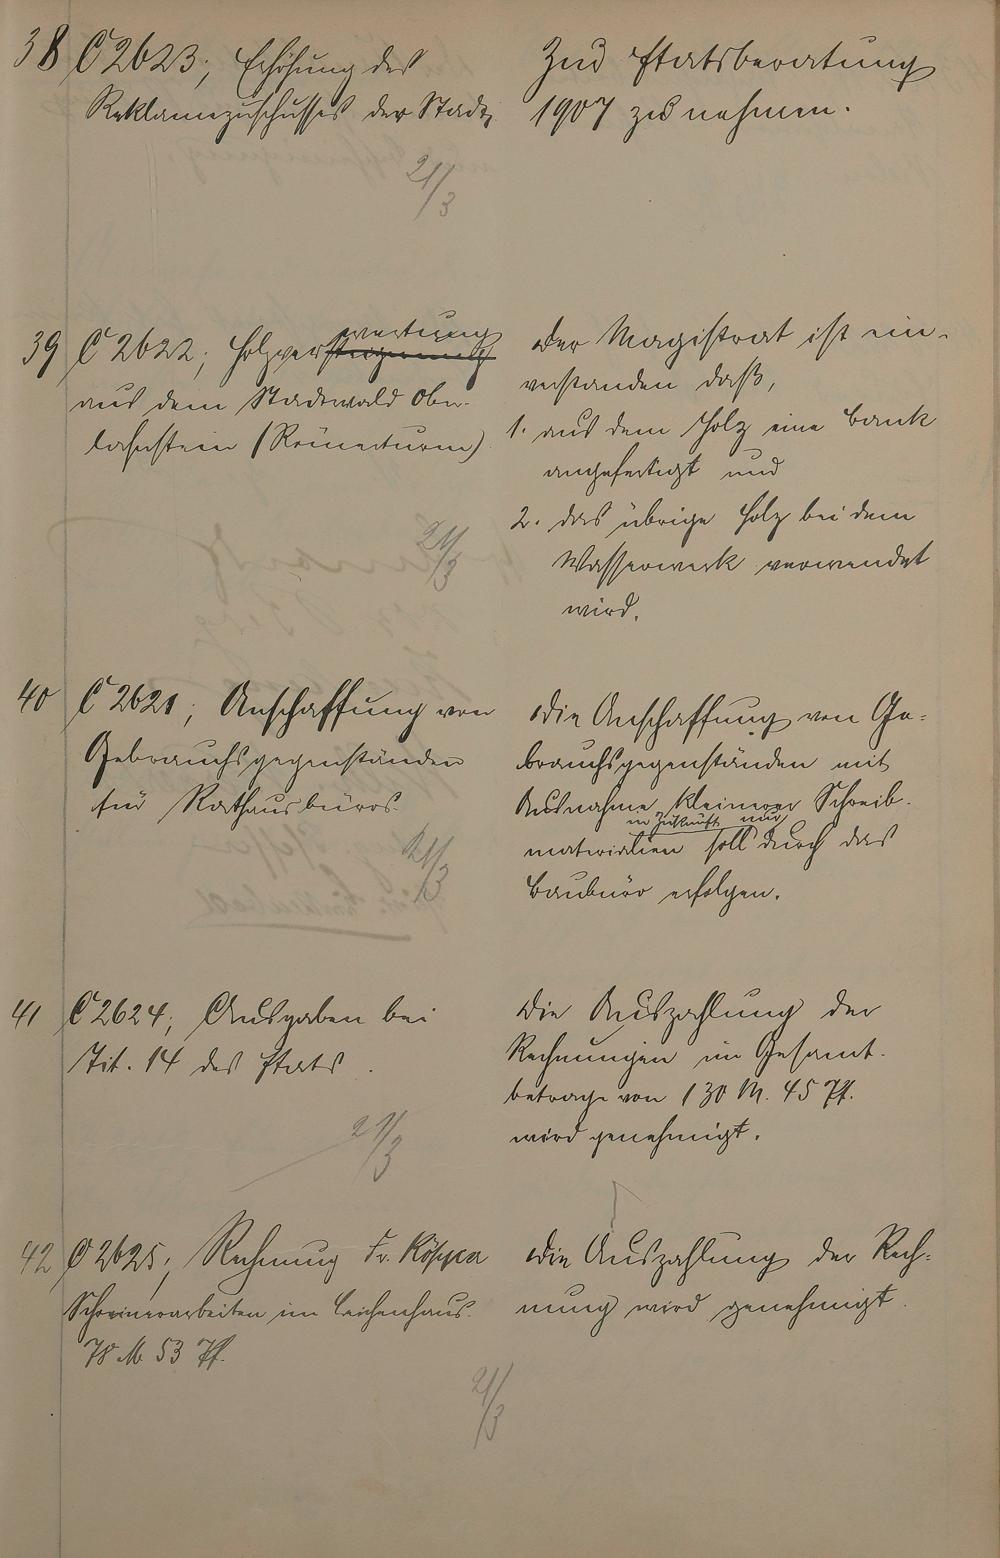 38 C 2623; Erhöhung des
Reklamezuschusses der Stadt,
21/3
Zur Etatsberatung
1907 zu nehmen.
39 C 2622; Holzversteigerung wertung
aus dem Stadtwald Ober-
lahnstein (Römerturm)
21/3
Der Magistrat ist ein-
verstanden daß,
1. aus dem Holz eine Bank
angefertigt und
2. das übrige Holz bei dem
Wasserwerk verwendet
wird.
40 C 2621; Anschaffung von
Gebrauchsgegenständen
für Rathausbüros.
21/3
Die Anschaffung von Ge-
brauchsgegenständen mit
Ausnahme kleinerer Schreib-
in Zukunft nur
materialien soll durch das
Baubüro erfolgen.
41 C 2624; Ausgaben bei
Tit. 14 des Etats.
21/3
Die Auszahlung der
Rechnungen im Gesamt-
betrage von 130 M. 45 Pf.
wird genehmigt.
42 C 2625; Rechnung Fr. Köppen
Schreinerarbeiten im Leichenhaus.
78 M 53 Pf.
21/3
Die Auszahlung der Rech-
nung wird genehmigt.